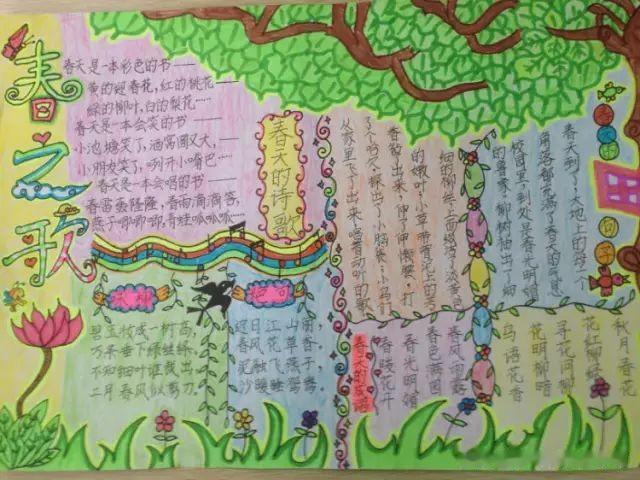 春之歌
春天是一本彩色的书——
黄的迎春花，红的桃花——
绿的柳叶，白的梨花……
春天是一本会笑的书——
小池塘笑了，酒窝圆又大，
小朋友笑了，咧开小嘴巴……
春天是一本会唱的书——
春雷轰隆隆，春雨滴滴答，
燕子唧唧唧，青蛙呱呱呱……
春天的诗歌
咏柳
碧玉妆成一树高，
万条垂下绿丝绦。
不知细叶谁裁出，
二月春风似剪刀。
绝句
迟日江山丽，
春风花草香。
泥融飞燕子，
沙暖睡鸳鸯。
春天的句子
春天到了，大地上的每一个
角落都充满了春天的气息
校园里，到处是春光明媚
的景象，柳树抽出了细
细的柳丝，上面缀
的嫩叶，小草带着
春的
出来，伸了伸懒腰，打
了个哈欠，探出了小脑袋，小鸟们
从家里飞了出来，唱着动听的歌
春天的成语
春暖花开
春光明媚
春色满园
春风
鸟语花香
花明柳暗
寻花问柳
花红柳绿
秋月春花